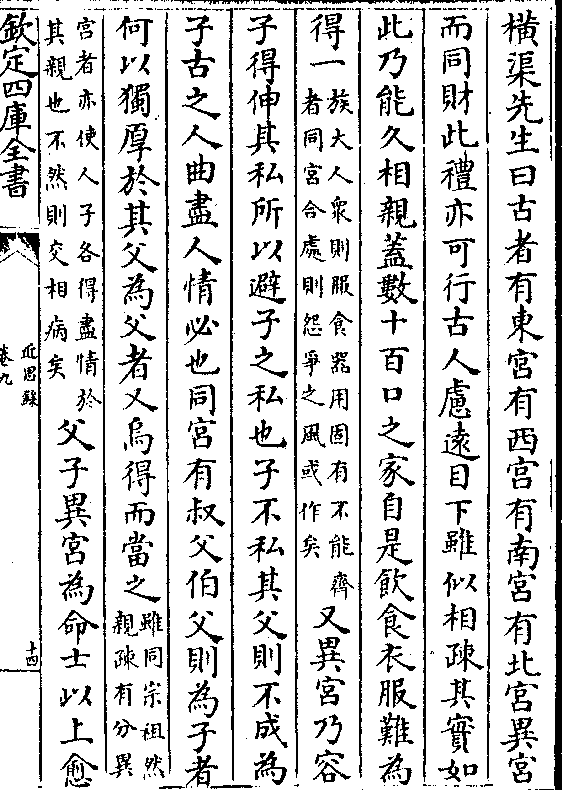 橫渠先生曰古者有東宮有西宮有南宮有北宮異宮
而同財此禮亦可行古人慮遠目下雖似相疎其實如
此乃能久相親蓋數十百口之家自是飲食衣服難為
得一族大人衆則服食器用固有不能齊
者同宮合處則怨爭之風或作矣又異宮乃容
子得伸其私所以避子之私也子不私其父則不成為
子古之人曲盡人情必也同宮有叔父伯父則為子者
何以獨厚於其父為父者又烏得而當之雖同宗祖然
親疎有分異
宮者亦使人子各得盡情於
其親也不然則交相病矣父子異宮為命士以上愈
欽定四庫全書
近思錄
卷九
十四